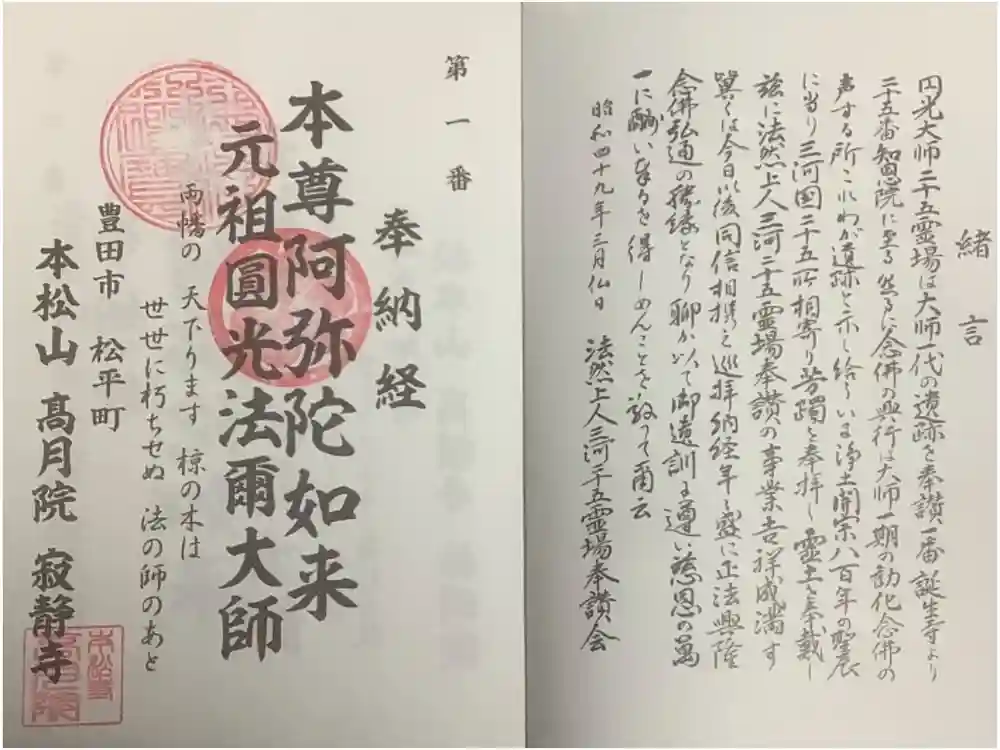 緒言
円光大師二十五霊場は大師一代の遺跡を奉讃一番誕生寺より
二十五番知恩院に至る然るに念佛の興行は大師一期の勧化念佛の
声する所これわが遺跡と示し給ういま浄土開宗八百年の聖辰
に当り三河国二十五所相寄り芳躅を奉拝し霊土を奉戴し
茲に法然上人三河二十五霊場奉讃の事業吉祥成満す
冀くは今日以後同信相携え巡拝納経年々盛に正法興隆
念佛弘通の勝縁となり聊か以て御遺訓に遵い慈恩の萬
一に酬い奉るを得しめんことを敬って爾云
昭和四十九年三月仏日 法然上人三河二十五霊場奉讃会
第一番
奉納経
本尊阿弥陀如来
元祖圓光法爾大師
両幡の 天下ります 椋の木は
世世に朽ちせぬ 法の師のあと
豊田市 松平町
本松山 高月院 寂静寺